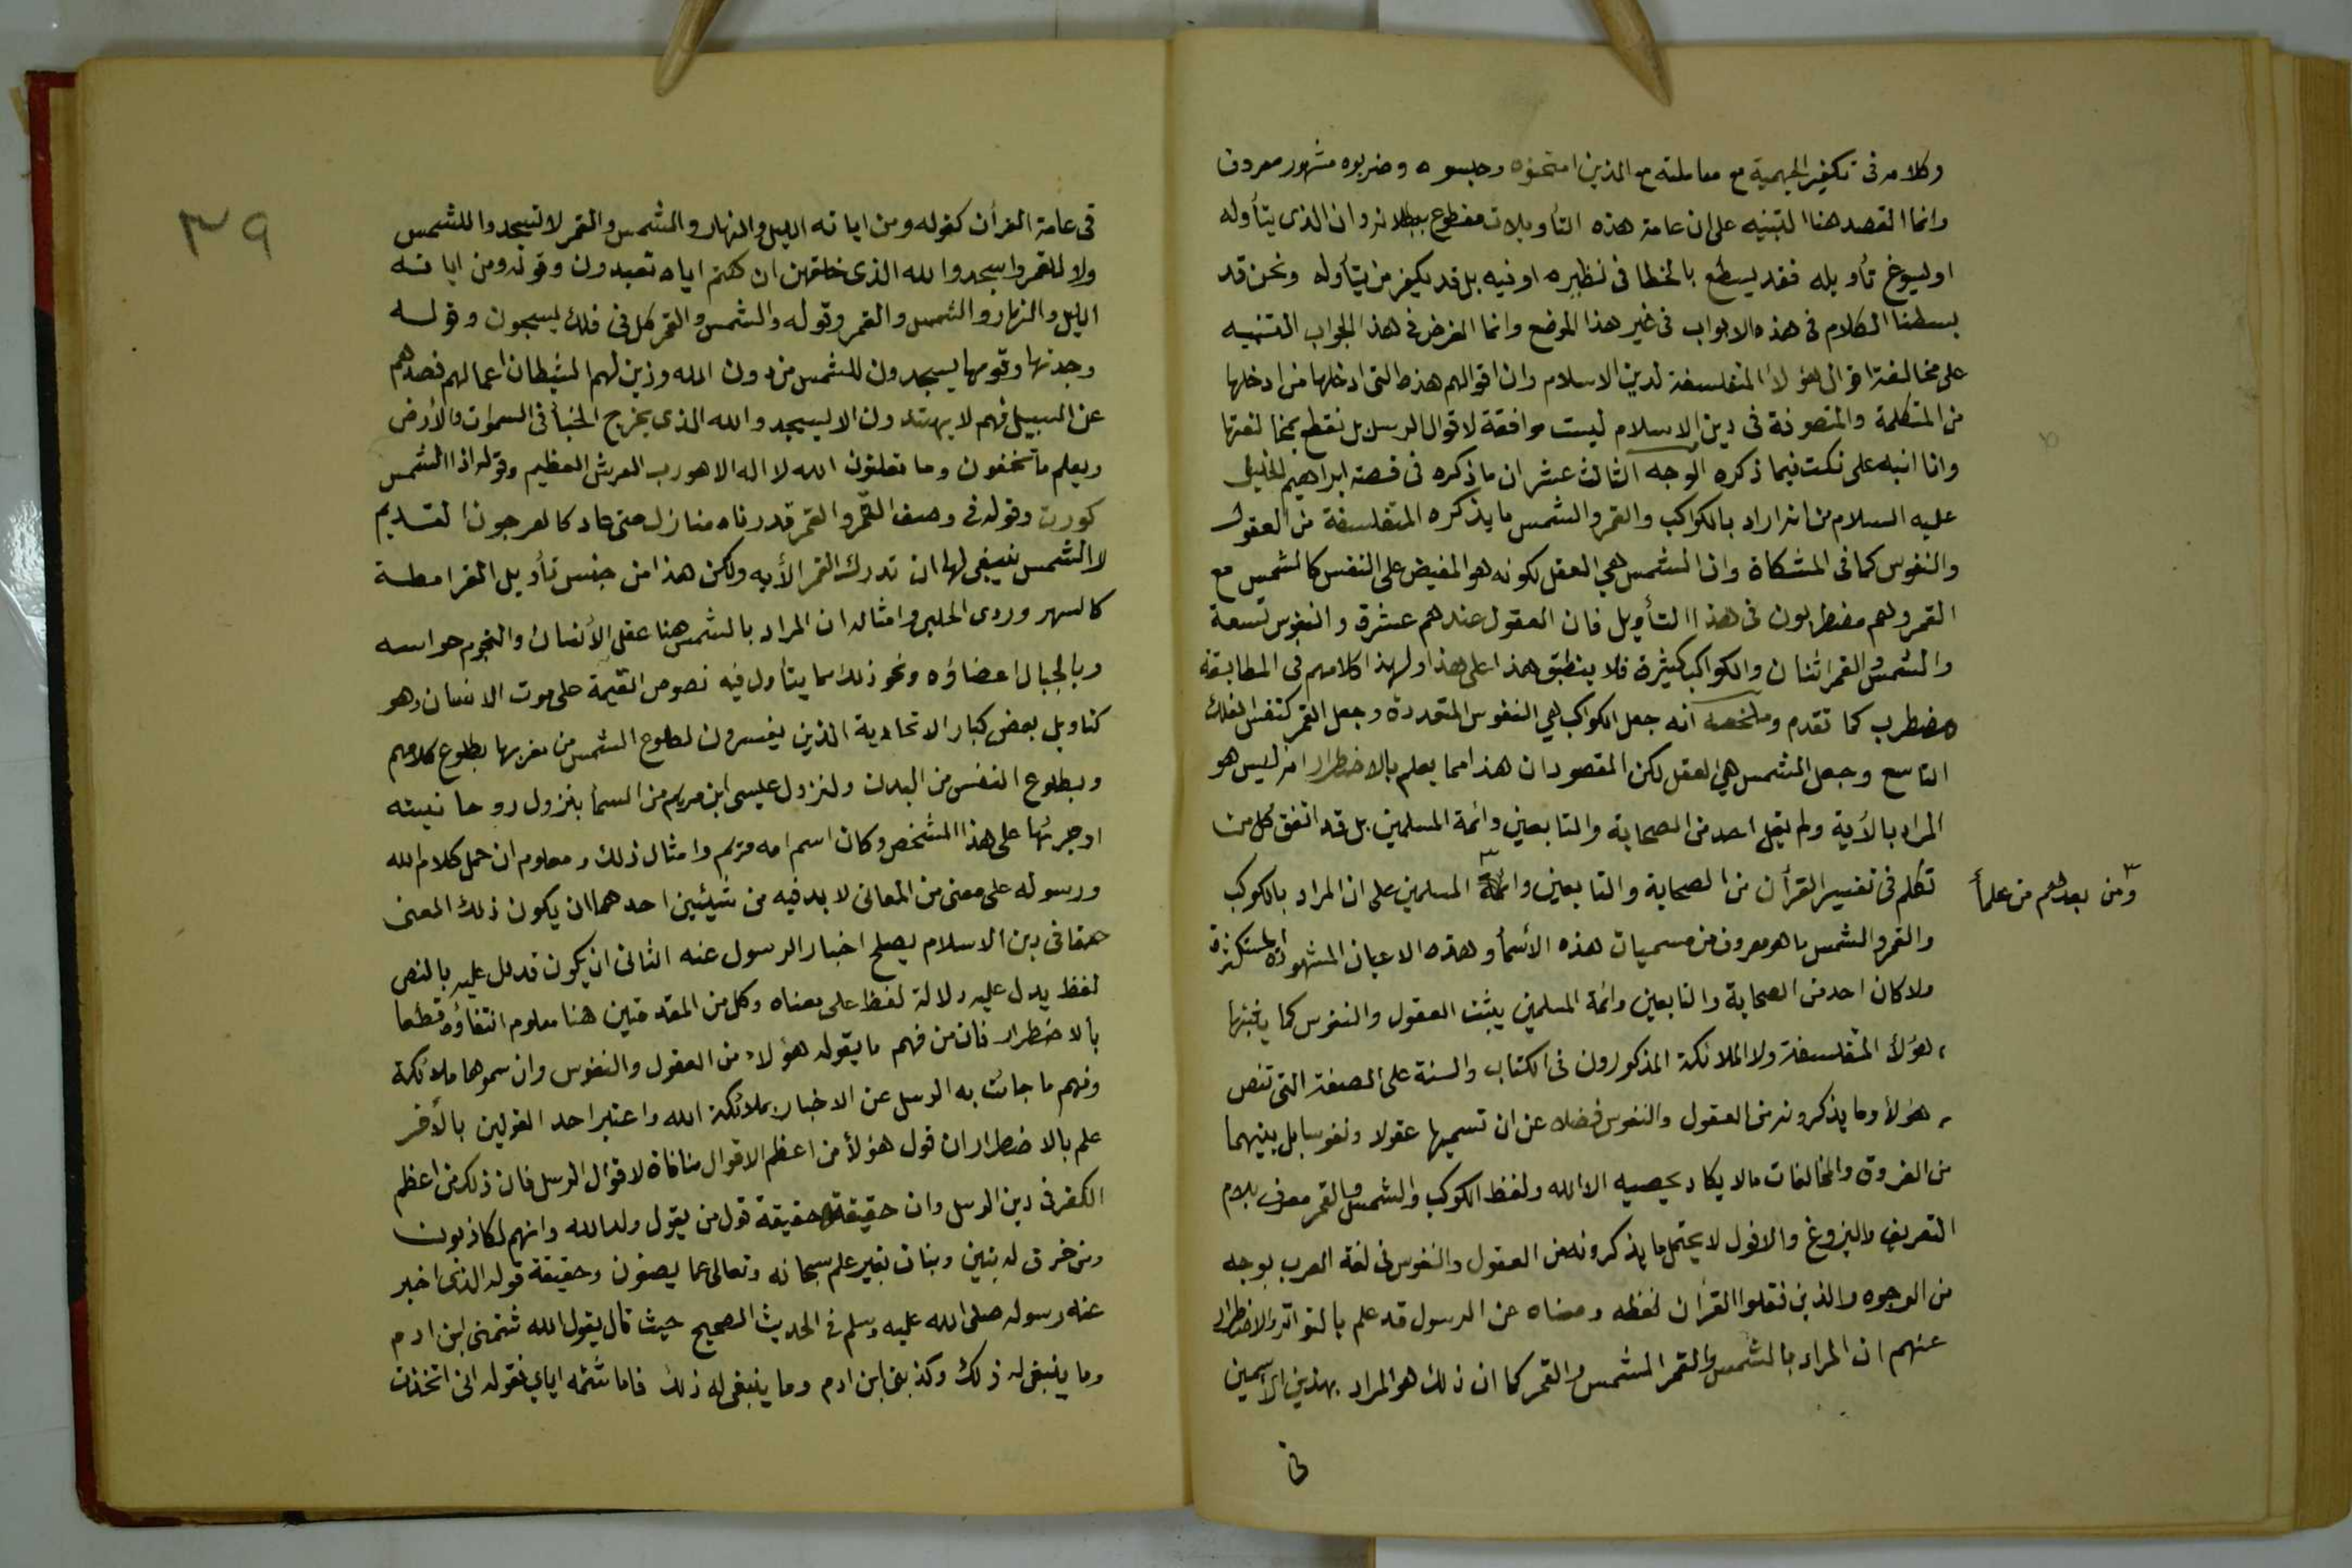 وكلامه فى تكفير الجهمية مع معاملته مع الذين امتحنوه وحبسوه وضربوه مشهور معروف
وانما القصد هنا التنبيه على ان عامة هذه التأويلات مقطوع ببطلانه وان الذى يتأوله
او يسوغ تأويله فقد يسطع بالخطا فى نظيره او فيه بل قد يكفر من يتأوله ونحن قد
بسطنا الكلام فى هذه الابواب فى غير هذا الموضع وانما الغرض فى هذ الجواب التنبيه
على مخالفة اقوال هؤلاء المتفلسفة لدين الاسلام وان اقوالهم هذه التى ادخلها من ادخلها
من المتكلمة والمتصوفة فى دين الاسلام ليست موافقة لاقوال الرسل بل نقطع بمخالفتها
وانا انبه على نكت فيما ذكره الوجه الثالث عشر ان ما ذكره فى قصة ابراهيم الخليل
عليه السلام من انه اراد بالكواكب والقمر والشمس ما يذكره المتفلسفة من العقول
والنفوس كما فى المشكاة وان الشمس هي العقل لكونه هو المفيض على النفس كالشمس مع
القمر ولهم مضطربون فى هذا التأويل فان العقول عندهم عشرة والنفوس تسعة
والشمس والقمر اثنان والكواكب كثيرة فلا ينطبق هذا على هذا ولهذا كلامهم فى المطابقة
مضطرب كما تقدم وملخصه انه جعل الكواكب هي النفوس المتعددة وجعل القمر كنفس الفلك
التاسع وجعل الشمس هي العقل لكن المقصود ان هذا مما يعلم بالاضطرار انه ليس هو
المراد بالآية ولم يقل احد من الصحابة والتابعين وائمة المسلمين بل قد اتفق كل من
تكلم فى تفسير القرأن من الصحابة والتابعين وائمة المسلمين على ان المراد بالكوكب
ومن بعدهم من علمأ
والقمر والشمس ما هو معروف من مسميات هذه الأسمأ وهذه الاعيان المشهودة المستكثرة
ولا كان احد من الصحابة والتابعين وائمة المسلمين يثبت العقول والنفوس كما يثبتها
هؤلأ المتفلسفة ولا الملائكة المذكورون فى الكتاب والسنة على الصفة التى تنص
هؤلأ وما يذكرونه من العقول والنفوس فضلا عن ان تسميها عقولا ونفوسا بل بينهما
من الفروق والمخالفات ما لا يكاد يحصيه الا الله ولفظ الكوكب والشمس والقمر معرف بلام
التعريف والبزوغ والافول لا يحتمل ما يذكرونه من العقول والنفوس فى لغة العرب بوجه
من الوجوه والذين نقلوا القرأن لفظه ومعناه عن الرسول قد علم بالتواتر والاضطرار
عنهم ان المراد بالشمس والقمر الشمس والقمر كما ان ذلك هو المراد بهذين الاسمين
فى
٣٩
فى عامة القرأن كقوله ومن اياته الليل والنهار والشمس والقمر لا تسجدوا للشمس
ولا للقمر واسجدوا لله الذى خلقهن ان كنتم اياه تعبدون وقوله ومن اياته
الليل والنهار والشمس والقمر وقوله والشمس والقمر كل فى فلك يسبحون وقوله
وجدتها وقومها يسجدون للشمس من دون الله وزين لهم الشيطان اعمالهم فصدهم
عن السبيل فهم لا يهتدون الا يسجدوا لله الذى يخرج الخبأ فى السموات والأرض
ويعلم ما تخفون وما تعلنون الله لا اله الا هو رب العرش العظيم وقوله اذا الشمس
كورت وقوله فى وصف القمر والقمر قدرناه منازل حتى عاد كالعرجون القديم
لا الشمس ينبغى لها ان تدرك القمر الأيه ولكن هذا من جنس تأويل القرامطة
كالسهروردى الحلبى وامثاله ان المراد بالشمس هنا عقل الأنسان والنجوم حواسه
وبالجبال اعضاؤه ونحو ذلك مما يتأول فيه نصوص القيمة على موت الانسان وهو
كتاويل بعض كبار الاتحادية الذين يفسرون لطلوع الشمس من مغربها بطلوع كلامهم
وبطلوع النفس من البدن ولنزول عيسى ابن مريم من السمأ بنزول روحانيته
اوجرئها على هذا الشخص وكان اسم امه مريم وامثال ذلك ومعلوم ان حمل كلام الله
ورسوله على معنى من المعانى لا بد فيه من شيئين احدهما ان يكون ذلك المعنى
حقا فى دين الاسلام يصلح اخبار الرسول عنه الثانى ان يكون قد دل عليه بالنص
لفظ يدل عليه دلالة لفظ على معناه وكل من المقدمتين هنا معلوم انتفاؤه قطعا
بألاضطرار فان من فهم ما يقوله هؤلاء من العقول والنفوس وان سموها ملائكة
وفهم ما جائت به الرسل عن الاخبار بملائكة الله واعتبر احد القولين بالأخر
علم بالاضطرار ان قول هؤلأ من اعظم الاقوال منافاة لاقوال الرسل فان ذلك من اعظم
الكفر فى دين الرسل وان حقيقته حقيقة قول من يقول ولد الله وانهم لكاذبون
ومن خرق له بنين وبنات بغير علم سبحانه وتعالى عما يصفون وحقيقة قوله الذى اخبر
عنه رسوله صلى الله عليه وسلم فى الحديث الصحيح حيث قال يقول الله شتمنى ابن ادم
وما ينبغى له ذلك وكذبنى ابن ادم وما ينبغى له ذلك فاما شتمه اياي فقوله انى اتخذت